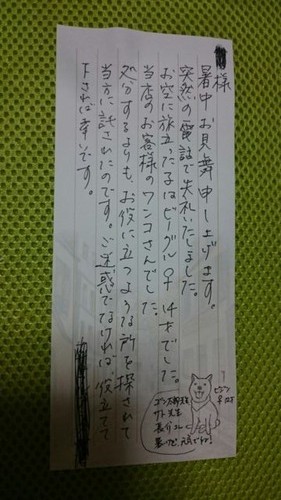 様
暑中お見舞申し上げます。
突然の電話で失礼いたしました。
お空に旅立った子はビーグル♀14才でした。
当店のお客様のワンコさんでした。
処分するよりも、お役に立つような所を探されて
当方に託されたのです。ご迷惑でなければ、役立てて
下されば幸いです。